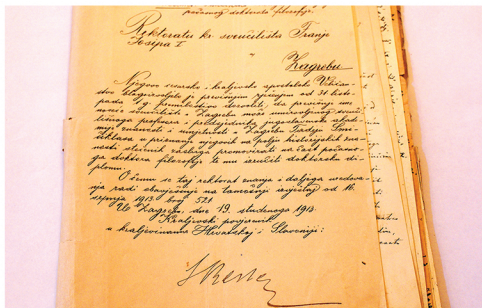 počasnog doktorata filozofije.
Rektoratu kr. sveučilišta Franje
Josipa I
Zagrebu
Njegovo cesarsko i kraljevsko apostolsko Veličan-
stvo blagoizvoljelo je previšnjim rješenjem od 31 listo-
pada t. g. premilostivo dozvoliti, da previšnji ime-
nosiće sveučilište u Zagrebu može umirovljenog sveuči-
lišnoga profesora i predsjednika jugoslavenske akade-
mije znanosti i umjetnosti u Zagrebu Tadiju Smi-
čiklasa u priznanju njegovih na polju historijskih zna-
nosti stečenih zasluga promovirati na čast počasno-
ga doktora filozofije te mu izručiti doktorsku di-
plomu.
O čemu se taj rektorat znanja i daljega uredova-
nja radi obavješćuje na tamošnji izvještaj od 16.
srpnja 1913. broj 521
U Zagrebu, dne 19. studenoga 1913.
Kraljevski povjerenik
u kraljevinama Hrvatskoj i Slavoniji: